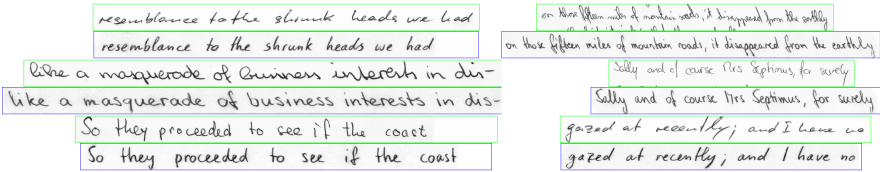 resemblance to the shrunk heads we had
resemblance to the shrunk heads we had
like a masquerade of business interests in dis-
like a masquerade of business interests in dis-
So they proceeded to see if the coast
So they proceeded to see if the coast
on those fifteen miles of mountain roads, it disappeared from the earthly
on those fifteen miles of mountain roads, it disappeared from the earthly
Sally and of course Mrs Septimus, for surely
Sally and of course Mrs Septimus, for surely
gazed at recently; and I have no
gazed at recently; and I have no